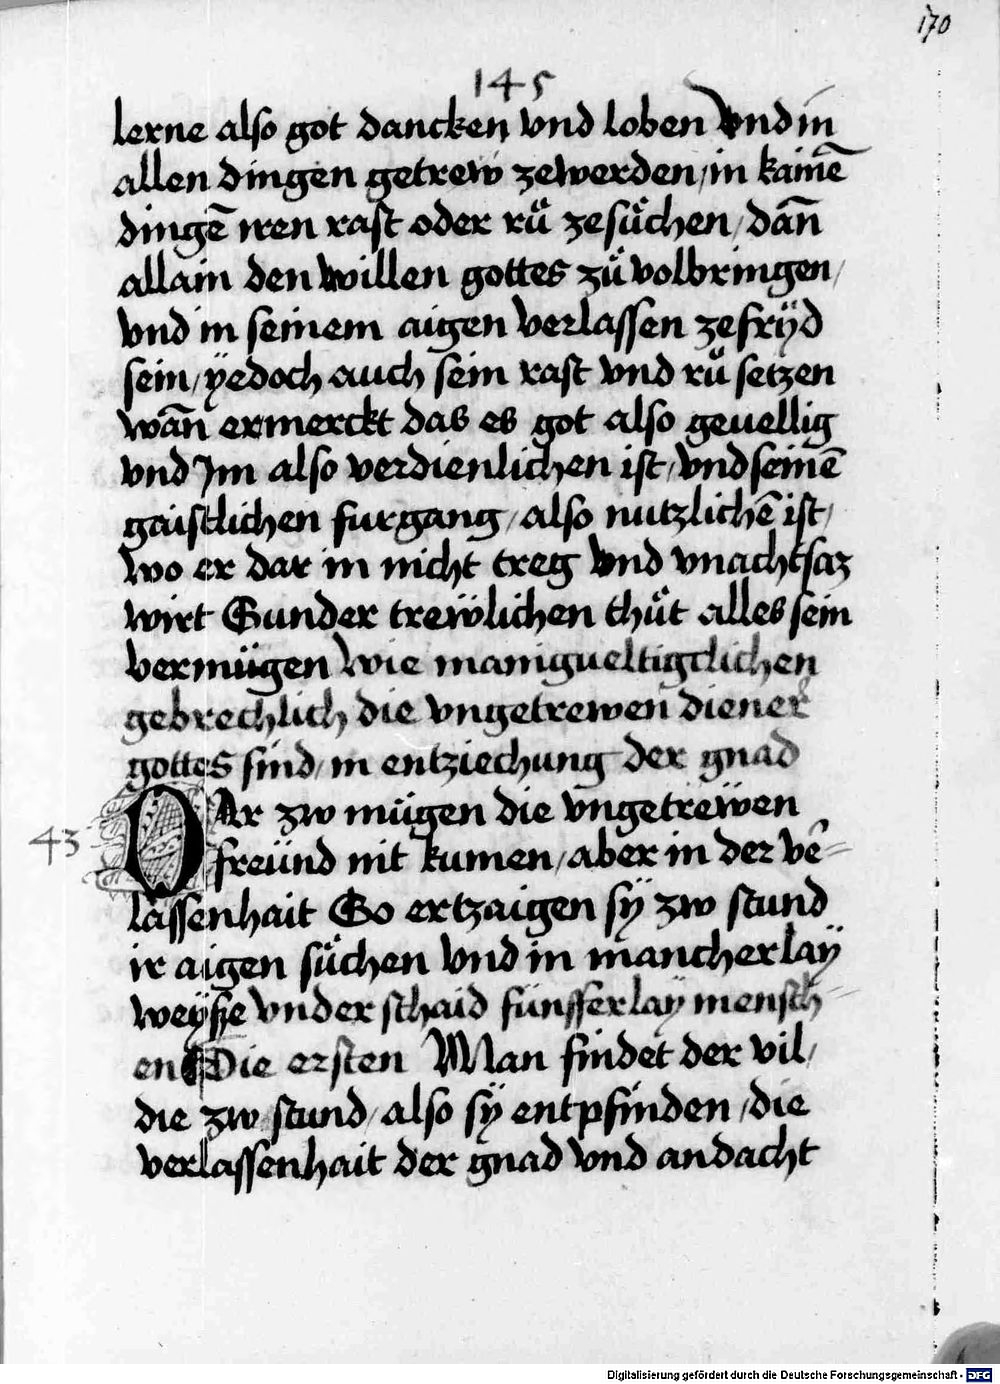 170
145
lerne also got dancken vnd loben vnd in
allen dingen getrew zewerden / in kainē
dingē iren rast oder rů zesůchen / dañ
allain den willen gottes zů volbringen /
vnd in seinem aigen verlassen zefrÿd
sein / ÿedoch auch sein rast vnd rů setzen
wañ er merckt das es got also geuellig
vnd Jm also verdienlichen ist / vnd seinē
gaistlichen furgang / also nutzlichē ist /
wo er dar in nicht treg vnd vnachtsaz
wirt Sunder treẅlichen thůt alles sein
vermügen Wie manigueltigclichen
gebrechlich die vngetrewen diener
gottes sind / in entziechung der gnad
43
DAr zw mügen die vngetreẅen
freünd nit kumen / aber in der ve᷑=
lassenhait So ertzaigen sÿ zw stund
ir aigen sůchen vnd in mancherlaÿ
weÿsse vnderschaid fünfferlaÿ mensch=
en Die ersten Man findet der vil /
die zw stund / also sÿ entpfinden / die
verlassenhait der gnad vnd andacht
Digitalisierung gefördert durch die Deutsche Forschungsgemeinschaft - DFG